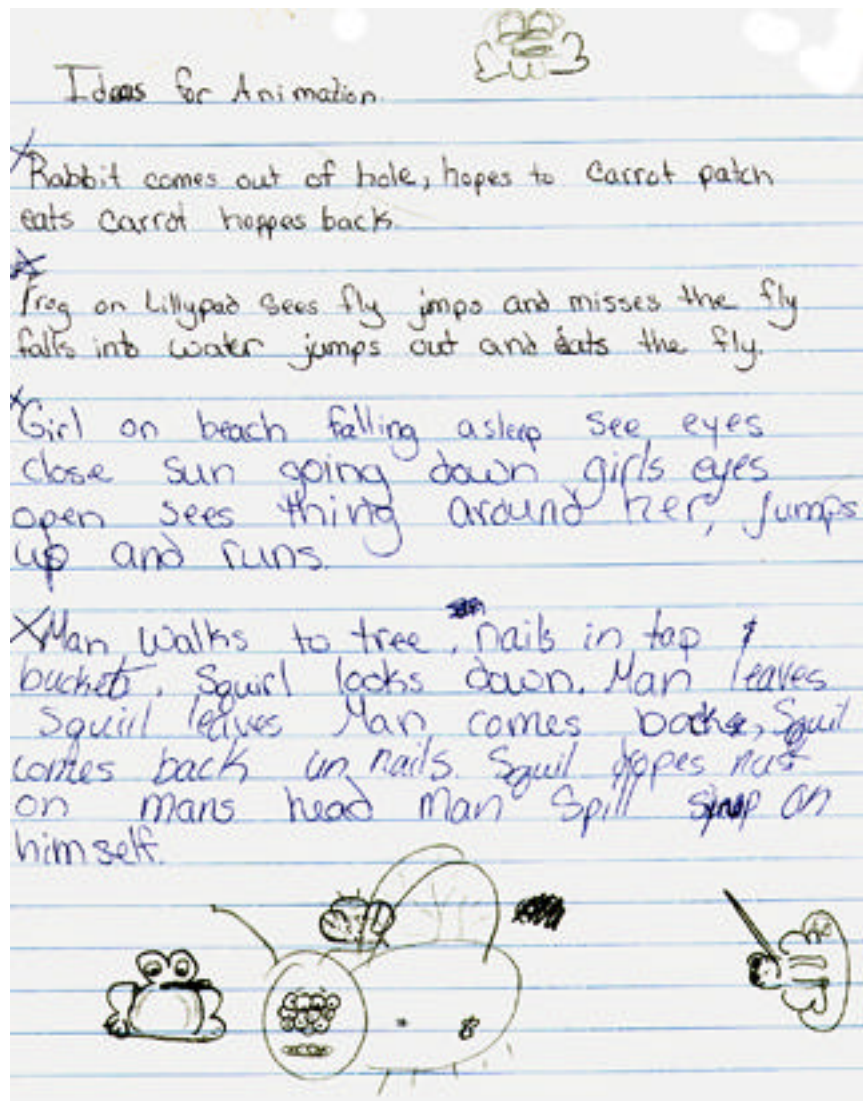 Ideas for Animation.
Rabbit comes out of hole, hopes to carrot patch
eats carrot hoppes back.
Frog on Lillypad sees fly jmps and misses the fly
falls into water jumps out and eats the fly.
Girl on beach falling asleep see eyes
close sun going down girls eyes
open sees thing around her, jumps
up and runs.
Man walks to tree, nails in tap &
buckets. Squirl looks down. Man leaves
Squirl leaves Man comes back, Squil
comes back un nails. Squil dropes nut
on mans head man Spill syrup on
himself.